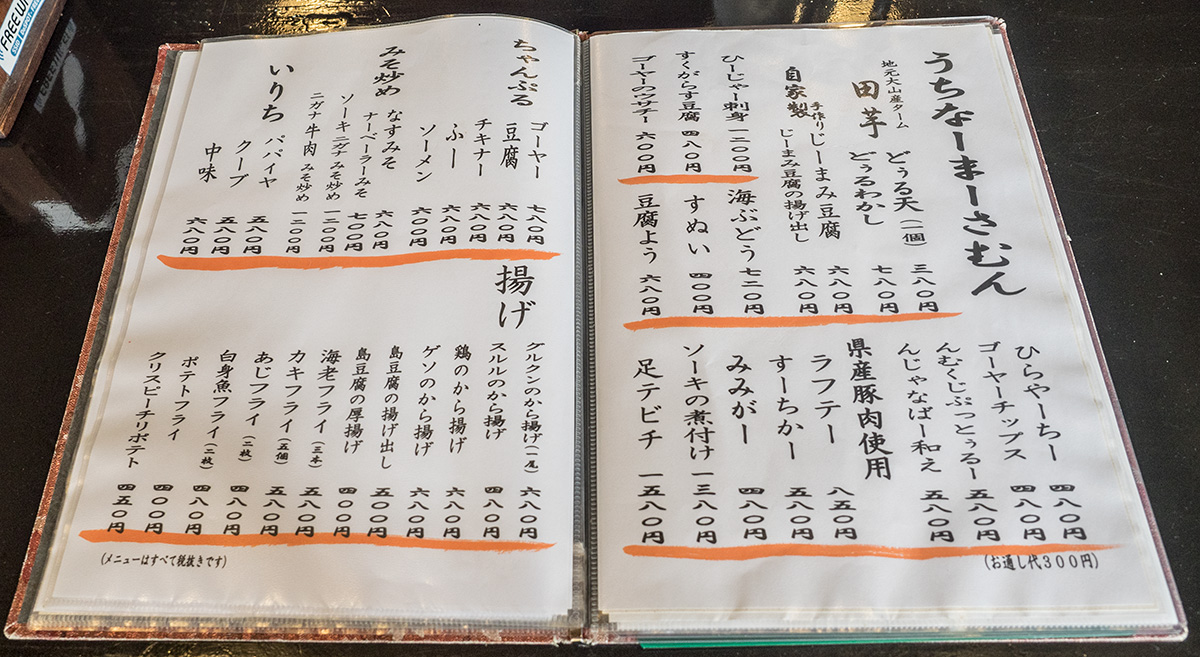 うちなーまーさむん
地元大山産ターム
田芋 どぅる天(一個) 三八〇円
どぅるわかし 七八〇円
自家製
手作りじーまみ豆腐 六八〇円
じーまみ豆腐の揚げ出し 六八〇円
ひーじゃー刺身 一二〇〇円
すくがらす豆腐 四八〇円
ゴーヤーのウサチー 六〇〇円
海ぶどう 七二〇円
すぬい 四〇〇円
豆腐よう 六八〇円
ひらやーちー 四八〇円
ゴーヤーチップス 四八〇円
んむくじぷっとぅるー 五八〇円
んじゃなばー和え 五八〇円
県産豚肉使用
ラフテー 八五〇円
すーちかー 五八〇円
みみがー 四八〇円
ソーキの煮付け 一三八〇円
足テビチ 一五八〇円
(お通し代300円)
ちゃんぷる
ゴーヤー 七八〇円
豆腐 六八〇円
チキナー 六八〇円
ふー 六八〇円
ソーメン 六〇〇円
みそ炒め
なすみそ 六八〇円
ナーベーラーみそ 七〇〇円
ソーキニガナみそ炒め 一二〇〇円
ニガナ牛肉みそ炒め 一二〇〇円
いりち
パパイヤ 五八〇円
クーブ 五八〇円
中味 六八〇円
揚げ
グルクンのから揚げ(一尾) 六八〇円
スルルのから揚げ 四八〇円
鶏のから揚げ 六八〇円
ゲソのから揚げ 六八〇円
島豆腐の揚げ出し 五〇〇円
島豆腐の厚揚げ 四〇〇円
海老フライ(三本) 五八〇円
カキフライ(五個) 五八〇円
あじフライ(二枚) 四八〇円
白身魚フライ(二枚) 四八〇円
ポテトフライ 四〇〇円
クリスピーチリポテト 四五〇円
(メニューはすべて税抜きです)